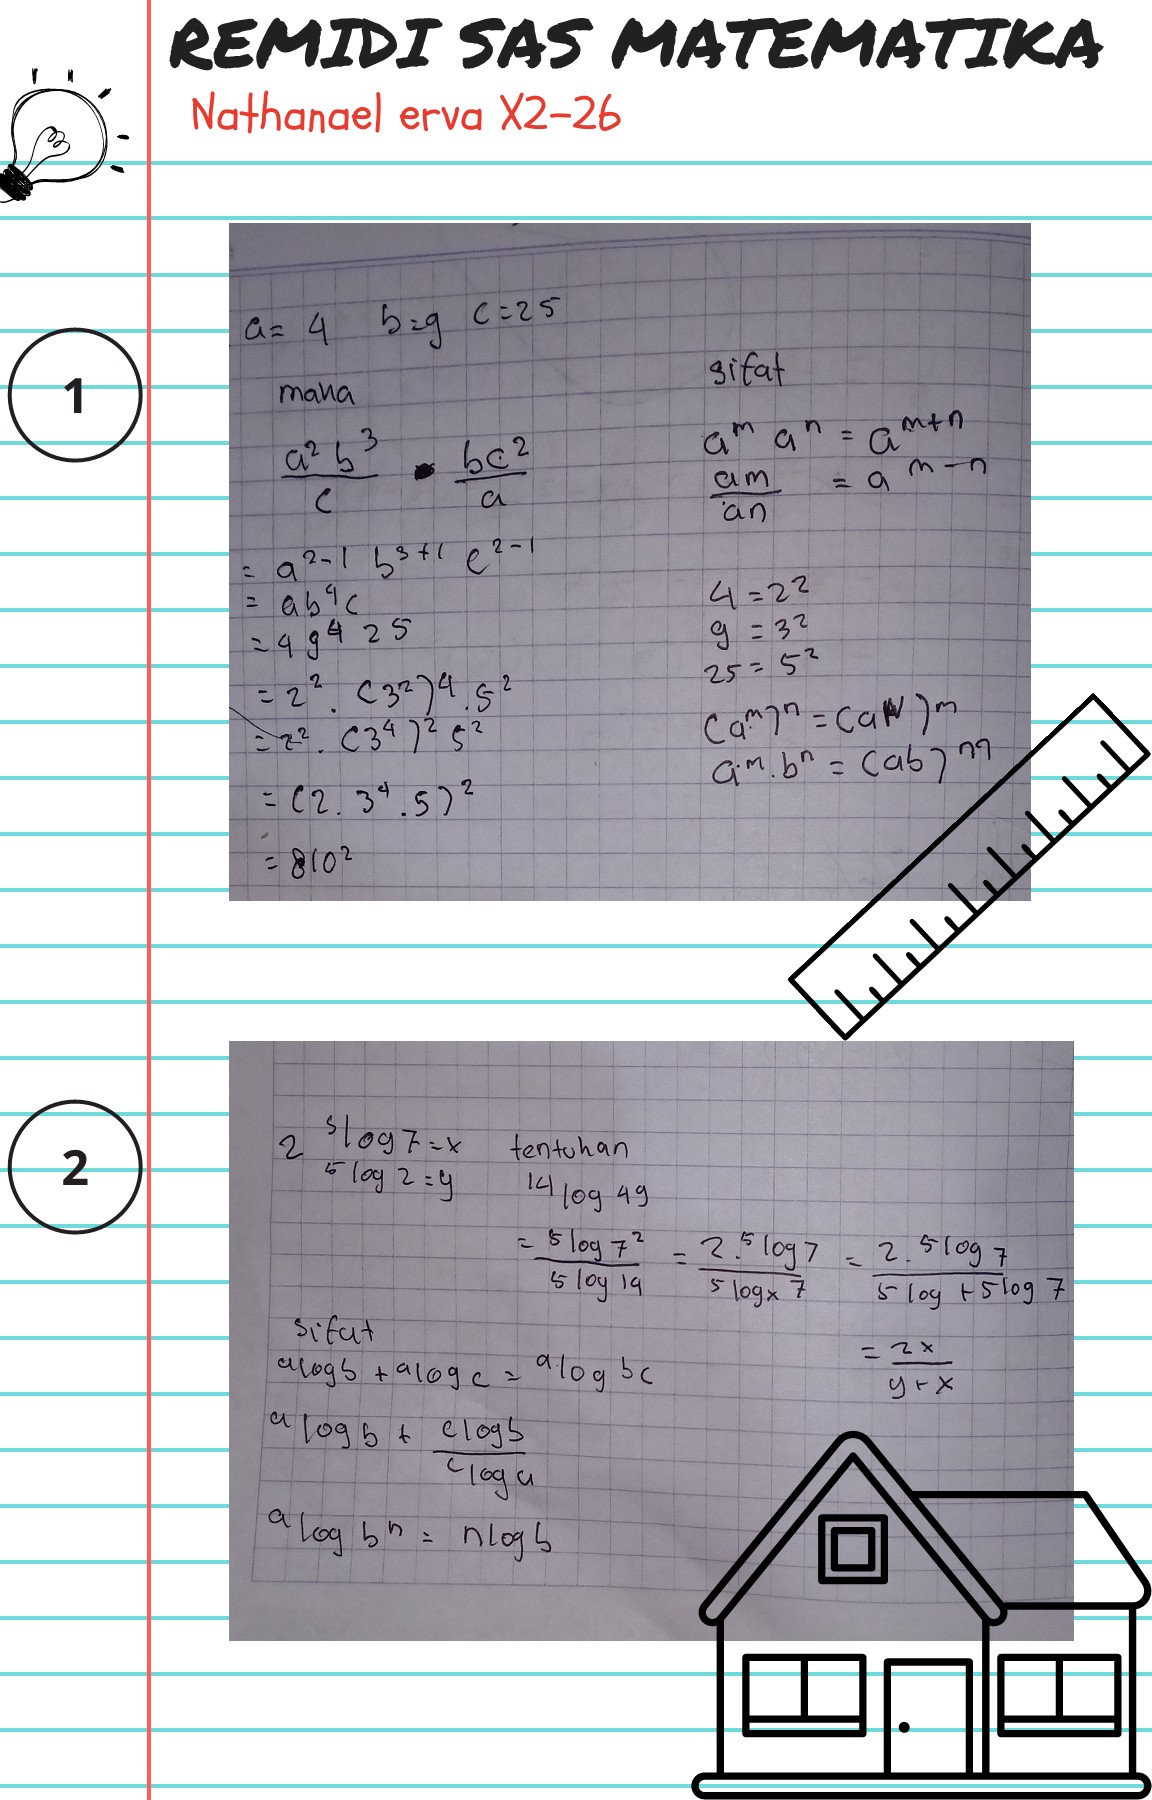 REMIDI SAS MATEMATIKA
Nathanael erva X2-26
1
a = 4 b = 9 c = 25
maka
a² b³ / c · bc² / a
= a²⁻¹ b³⁺¹ c²⁻¹
= ab⁴c
= 4 9⁴ 25
= 2² . (3²)⁴ . 5²
= 2² . (3⁴)² 5²
= (2 . 3⁴ . 5)²
= 810²
sifat
aᵐ aⁿ = aᵐ⁺ⁿ
am / an = a ᵐ⁻ⁿ
4 = 2²
9 = 3²
25 = 5²
(aᵐ)ⁿ = (aᴺ)ᵐ
aᵐ . bⁿ = (ab)ᵐ
2
2 ⁵log 7 = x tentukan
⁵log 2 = y ¹⁴log 49
= ⁵log 7² / 5 log 14 = 2 . ⁵log 7 / 5 logx 7 = 2 . ⁵log 7 / 5 log + 5 log 7
= 2x / y + x
sifat
alog b + alog c = ᵃlog bc
ᵃlog b + clog b / ᶜlog a
ᵃlog bⁿ = nlog b